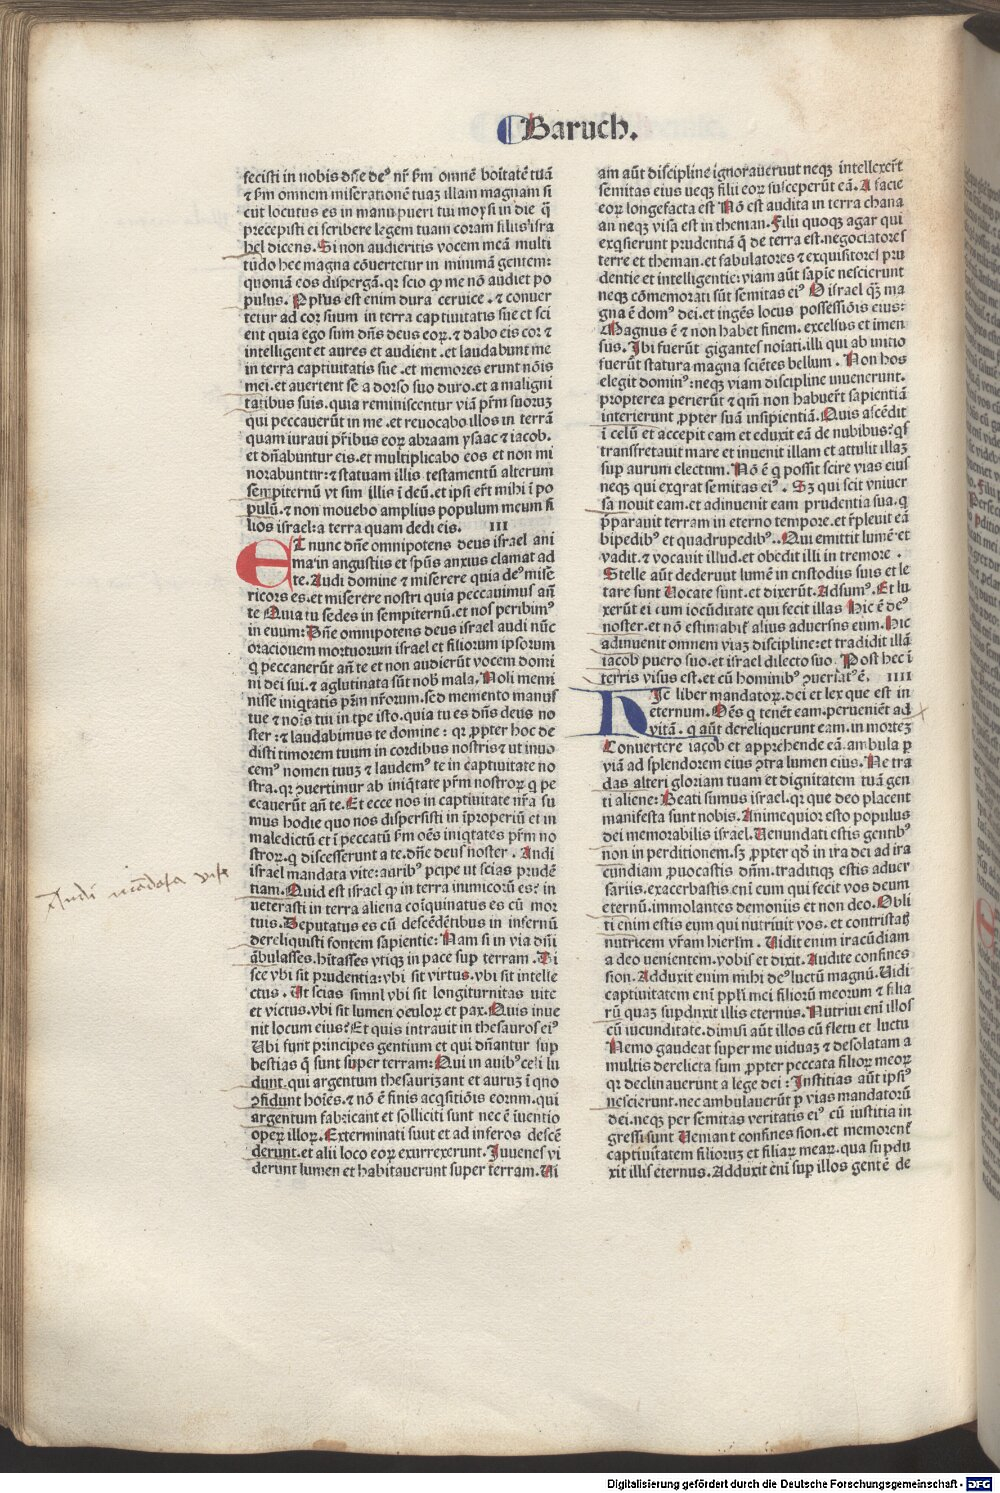 Baruch.
fecisti in nobis dn̄e de⁹ nr̄ ẜm omnē bōitatē tuā
⁊ ẜm omnem miserationē tuaꝫ illam magnam si
cut locutus es in manu pueri tui moysi in die q̄
precepisti ei scribere legem tuam coram filiis isra
hel dicens. Si non audieritis vocem meā multi
tudo hec magna cōuertetur in minimā gentem:
quoniā eos dispergā. qꝛ scio ꝙ me nō audiet po
pulus. Pplūs est enim dura ceruice. ⁊ conuer
tetur ad cor suum in terra captiuitatis sue et sci
ent quia ego sum dn̄s deus eoꝝ. ⁊ dabo eis cor ⁊
intelligent et aures et audient. et laudabunt me
in terra captiuitatis sue. et memores erunt nōis
mei. et auertent se a dorso suo duro. et a maligni
tatibus suis. quia reminiscentur viā pr̄m suoruꝫ
qui peccauerūt in me. et reuocabo illos in terrā
quam iuraui pr̄ibus eoꝝ abraam ysaac ⁊ iacob.
et dn̄abuntur eis. et multiplicabo eos et non mi
norabuntur: ⁊ statuam illis testamentū alterum
sempiternū vt sim illis ī deū. et ipsi er̄t mihi ī po
pulū. ⁊ non mouebo amplius populum meum fi
lios israel: a terra quam dedi eis. III
ET nunc dn̄e omnipotens deus israel ani
ma in angustiis et sp̄us anxius clamat ad
te. Audi domine ⁊ miserere quia de⁹ mise
ricors es. et miserere nostri quia peccauimus an̄
te Quia tu sedes in sempiternū. et nos peribim⁹
in euum: Dn̄e omnipotens deus israel audi nūc
orationem mortuorum israel et filiorum ipsorum
q̄ peccauerūt an̄ te et non audierūt vocem domi
ni dei sui. ⁊ aglutinata sūt nob̄ mala. Noli memi
nisse iniq̇tatis pr̄m nr̄orum. sed memento manus
tue ⁊ nōis tui in tp̄e isto. quia tu es dn̄s deus no
ster: ⁊ laudabimus te domine: qꝛ ꝓpter hoc de
disti timorem tuum in cordibus nostris ⁊ ut inuo
cem⁹ nomen tuuꝫ ⁊ laudem⁹ te in captiuitate no
stra. qꝛ ꝯuertimur ab iniq̇tate pr̄m nostroꝝ q̇ pe
ccauerūt an̄ te. Et ecce nos in captiuitate nr̄a su
mus hodie quo nos dispersisti in īproperiū et in
maledictū et ī peccatū ẜm oēs iniq̇tates pr̄m no
stroꝝ. q̇ discesserunt a te. dn̄e deus noster. Audi
israel mandata vite: aurib⁹ ꝑcipe ut scias prudē
tiam. Quid est israel ꝙ in terra inimicorū es? in
ueterasti in terra aliena coīquinatus es cū mor
tuis. Deputatus es cū descēdētibus in infernū
dereliquisti fontem sapientie: Nam si in via dn̄i
ābulasses. hītasses vtiꝗ in pace sup terram. Di
sce vbi sit prudentia: vbi sit virtus. vbi sit intelle
ctus. Ut scias simul vbi sit longiturnitas uite
et victus. vbi sit lumen oculoꝝ et pax. Quis inue
nit locum eius? Et quis intrauit in thesauros ei⁹
Ubi sunt principes gentium et qui dn̄antur sup
bestias q̄ sunt super terram: Qui in auib⁹ celi lu
dunt. qui argentum thesaurizant et auruꝫ ī quo
ꝯfidunt hoīes. ⁊ nō ē finis acq̇sitiōis eorum. qui
argentum fabricant et solliciti sunt nec ē īuentio
operꝝ illoꝝ. Exterminati sunt et ad inferos descē
derunt. et alii loco eoꝝ exurrexerunt. Juuenes vi
derunt lumen et habitauerunt super terram. Ui
Audi mādata vite
am aūt discipline ignorauerunt neqꝫ intellexer̄t
semitas eius neqꝫ filii eoꝝ susceperūt eā. A facie
eoꝝ longe facta est Nō est audita in terra chana
an neqꝫ visa est in theman. Filii quoqꝫ agar qui
exq̇sierunt prudentiā q̄ de terra est. negociatores
terre et theman. et fabulatores ⁊ exquisitores pru
dentie et intelligentie: viam aūt sapīe nescierunt
neqꝫ cōmemorati sūt semitas ei⁹ O israel q̄ꝫ ma
gna ē dom⁹ dei. et ingēs locus possessiōis eius:
Magnus ē ⁊ non habet finem. excelsus et imen
sus. Ibi fuerūt gigantes noīati. illi qui ab initio
fuerūt statura magna sciētes bellum. Non hos
elegit domin⁹: neqꝫ viam discipline inuenerunt.
propterea perierūt ⁊ qm̄ non habuer̄t sapientiā
interierunt ꝓpter suā insipientiā. Quis ascēdit
ī celū et accepit eam et eduxit eā de nubibus? q̇s
transfretauit mare et inuenit illam et attulit illaꝫ
sup aurum electum. Nō ē q̇ possit scire vias eius
neqꝫ qui exq̇rat semitas ei⁹. Sꝫ qui scit vniuer
sa nouit eam. et adinuenit eam prudentia sua. q̇
p̄parauit terram in eterno tempore. et r̄pleuit eā
bipedib⁹ et quadrupedib⁹. Qui emittit lumē et
vadit. ⁊ vocauit illud. et obedit illi in tremore.
Stelle aūt dederunt lumē in custodiis suis et le
tate sunt Uocate sunt. et dixerūt. Adsum⁹. Et lu
xerūt ei cum iocūditate qui fecit illas Hic ē de⁹
noster. et nō estimabit̄ alius aduersus eum. Hic
adinuenit omnem viaꝫ discipline: et tradidit illā
iacob puero suo. et israel dilecto suo. Post hec ī
terris visus est. et cū hominib⁹ ꝯuersat⁹ ē. IIII
HIc liber mandatoꝝ. dei et lex que est in
eternum. Oēs q̇ tenēt eam. peruenient ad
vitā. q̇ aūt dereliquerunt eam. in morteꝫ
Conuertere iacob et apprehende eā. ambula ꝑ
viā ad splendorem eius ꝯtra lumen eius. Ne tra
das alteri gloriam tuam et dignitatem tuā gen
ti aliene: Beati sumus israel. qꝛ que deo placent
manifesta sunt nobis. Animequior esto populus
dei memorabilis israel. Uenundati estis gentib⁹
non in perditionem. sꝫ ꝓpter qd̄ in ira dei ad ira
cundiam ꝓuocastis dn̄m. traditiqꝫ estis aduer
sariis. exacerbastis enī eum qui fecit vos deum
eternū. immolantes demoniis et non deo. Obli
ti enim estis eum qui nutriuit vos. et contristatꝭ
nutricem vr̄am hierlm̄. Uidit enim iracūdiam
a deo uenientem. vobis et dixit. Audite confines
sion. Adduxit enim mihi de⁹ luctū magnū. Uidi
captiuitatem enī pplī mei filiorū meorum ⁊ filia
rū quaꝫ supduxit illis eternus. Nutriui enī illos
cū iucunditate. dimisi aūt illos cū fletu et luctu
Nemo gaudeat super me viduaꝫ ⁊ desolatam a
multis derelicta sum ꝓpter peccata filioꝝ meoꝝ
qꝛ declinauerunt a lege dei: Justitias aūt ipsi⁹
nescierunt. nec ambulauerūt ꝑ vias mandatorū
dei. neqꝫ per semitas veritatis ei⁹ cū iustitia in
gressi sunt Ueniant confines sion. et memorent̄
captiuitatem filioruꝫ et filiaꝝ meaꝝ. qua supdu
xit illis eternus. Adduxit enī sup illos gentē de
Digitalisierung gefördert durch die Deutsche Forschungsgemeinschaft - DFG